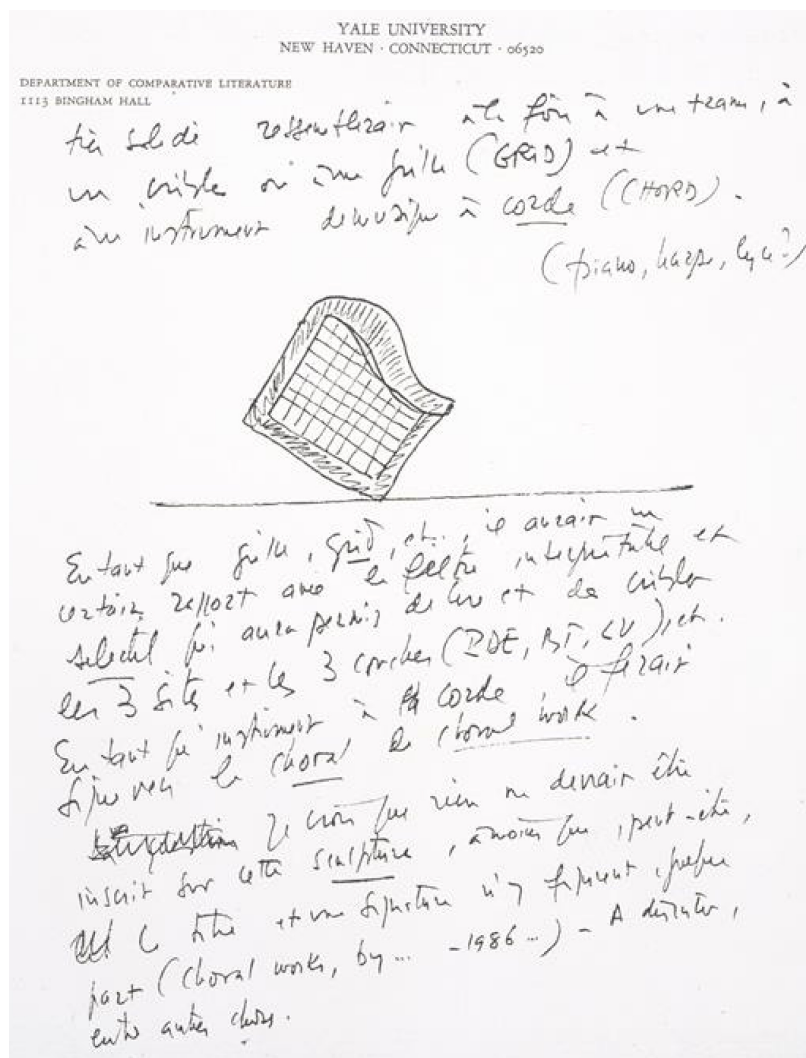 YALE UNIVERSITY
NEW HAVEN · CONNECTICUT · 06520
DEPARTMENT OF COMPARATIVE LITERATURE
1113 BINGHAM HALL
très solide ressemblerait à la fois à une trame, à
un crible ou à une grille (GRID) et
à un instrument de musique à corde (CHORD).
(piano, harpe, lyre?)
En tant que grille, grid, etc., il aurait un
certain rapport avec le filtre interprétatif et
sélectif qui aura permis de lire et de cribler
les 3 sites et les 3 couches (PDE, BT, LV), etc.
En tant qu' instrument à corde, il ferait
signe vers le choral de choral work.
Je crois que rien ne devrait être
inscrit sur cette sculpture, à moins que, peut-être,
le titre et une signature n'y figurent, quelque
part (Choral works, by... -1986...) - A discuter,
entre autres choses.